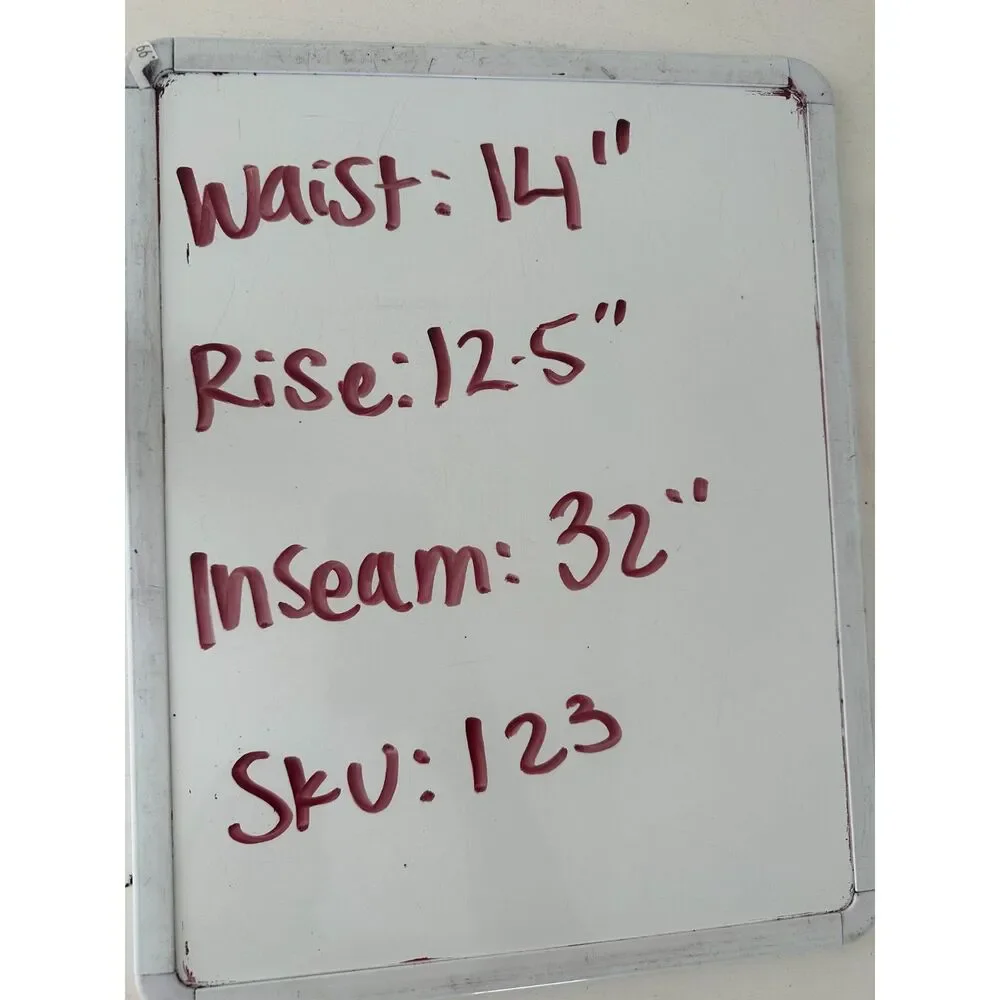 Waist: 14"
Rise: 12.5"
Inseam: 32"
SKU: 123
66